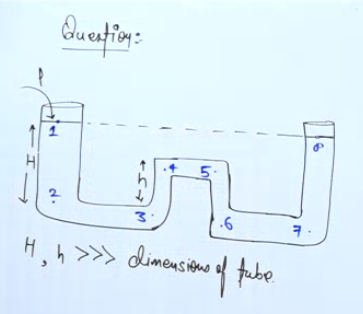 Question:-
P
1
8
H
h
4
5
2
3
6
7
H, h >>> dimensions of tube.